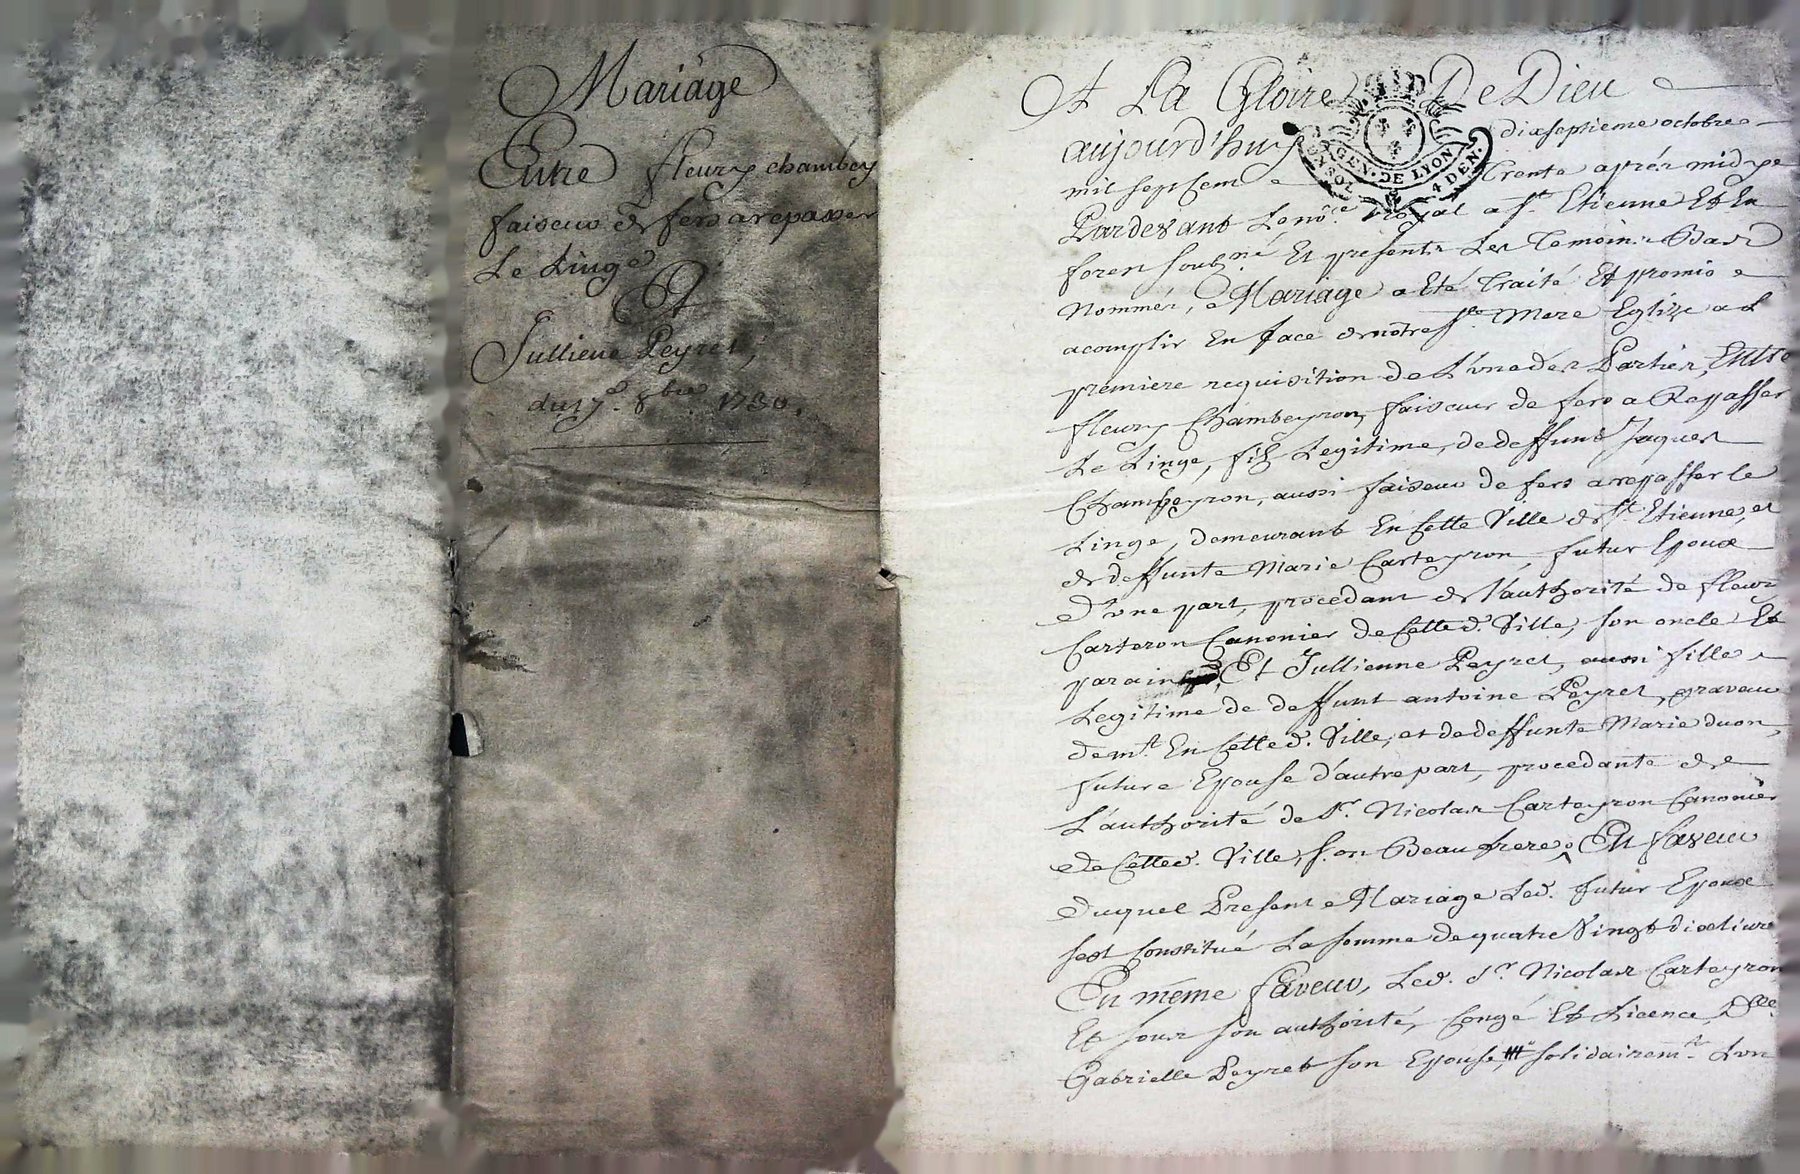 Mariage
Entre fleury chambey
faiseur de fers a repasser
Le Linge
Et
Julliene Peyret,
du 17e. 8bre 1730.
A La Gloire De Dieu
aujourd'huy dixseptieme octobre
mil sept cent trente aprés midy
GEN. DE LYON
4 DEN.
Pardevant Le nore. royal a St. Etienne Et En
forest soubsné Et presents Les Temoins Bas
Nommés, Mariage a Eté Traité Et promis
acomplir En face de nôtre Ste. Mere Eglize a L
premiere requisition de L'une des Parties, Entre
fleury Chambeyron, faiseur de fers a Repasser
Le Linge, fils Legitime, de deffunt Jaques
Chambeyron, aussi faiseur de fers a repasser le
Linge, demeurant En Cette Ville de St. Etienne, et
de deffunte Marie Carteyron, futur Epoux
d'une part, procedant de l'authorité de fleury
Carteron Canonier de Cette d. Ville, son oncle Et
parain Et Jullienne Peyret, aussi fille
Legitime de deffunt antoine Peyret, graveur
demt. En Cette d. Ville, et de deffunte Marie duon,
future Epouse d'autre part, procedante de
L'authorité de Sr. Nicolas Carteyron Canonier
de Cette d. Ville, son Beaufrere, En faveur
Duquel Present Mariage Led. futur Epoux
sest Constitué La somme de quatre Vingt dix livres
En même faveur, Led. Sr. Nicolas Carteyron
Et sous son authorité, Congé Et Licence, Dlle.
Gabrielle Peyret son Epouse, solidairemt. Lun